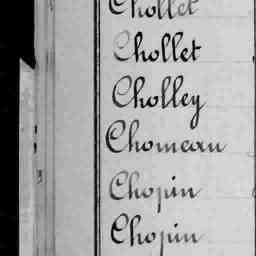 Chollet
Chollet
Cholley
Chomeau
Chopin
Chopin